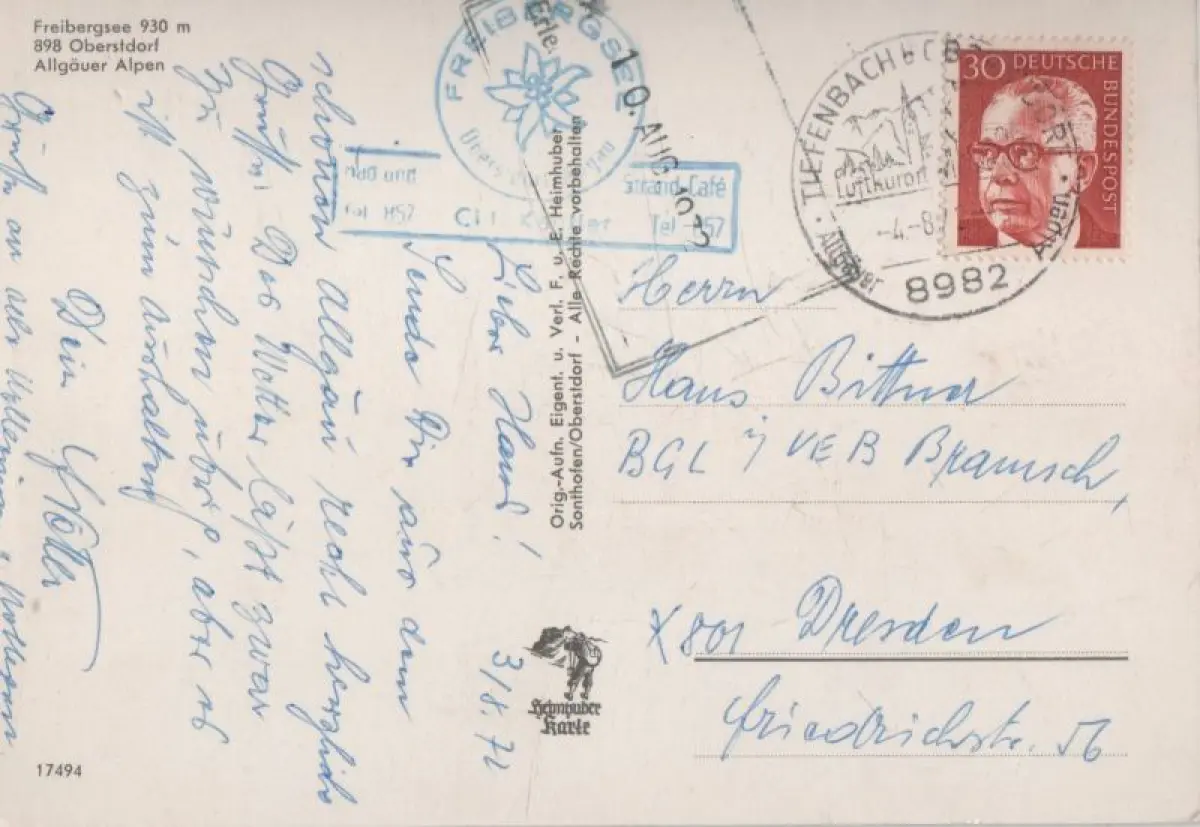 Freibergsee 930 m
898 Oberstdorf
Allgäuer Alpen
3/8. 72
Lieber Hans!
Sende Dir aus dem
schönen Allgäu recht herzliche
Grüße. Das Wetter läßt zwar
zu wünschen übrig, aber es
ist zum aushalten
Dein
Grüße an alle
17494
Orig.-Aufn. Eigent. u. Verl. F. u. E. Heimhuber
Sonthofen/Oberstdorf - Alle Rechte vorbehalten
Heimhuber
Karte
FREIBERGSEE
Strand-Café
Tel. 857
Tel 857
Erle
10. AUG.
TIEFENBACH b OBERSTDORF
Luftkurort
-4.-8
Allgäuer Alpen
8982
30 DEUTSCHE
BUNDESPOST
Herrn
Hans Bittner
BGL i/ VEB Bramsch
X 801 Dresden
Friedrichstr. 56